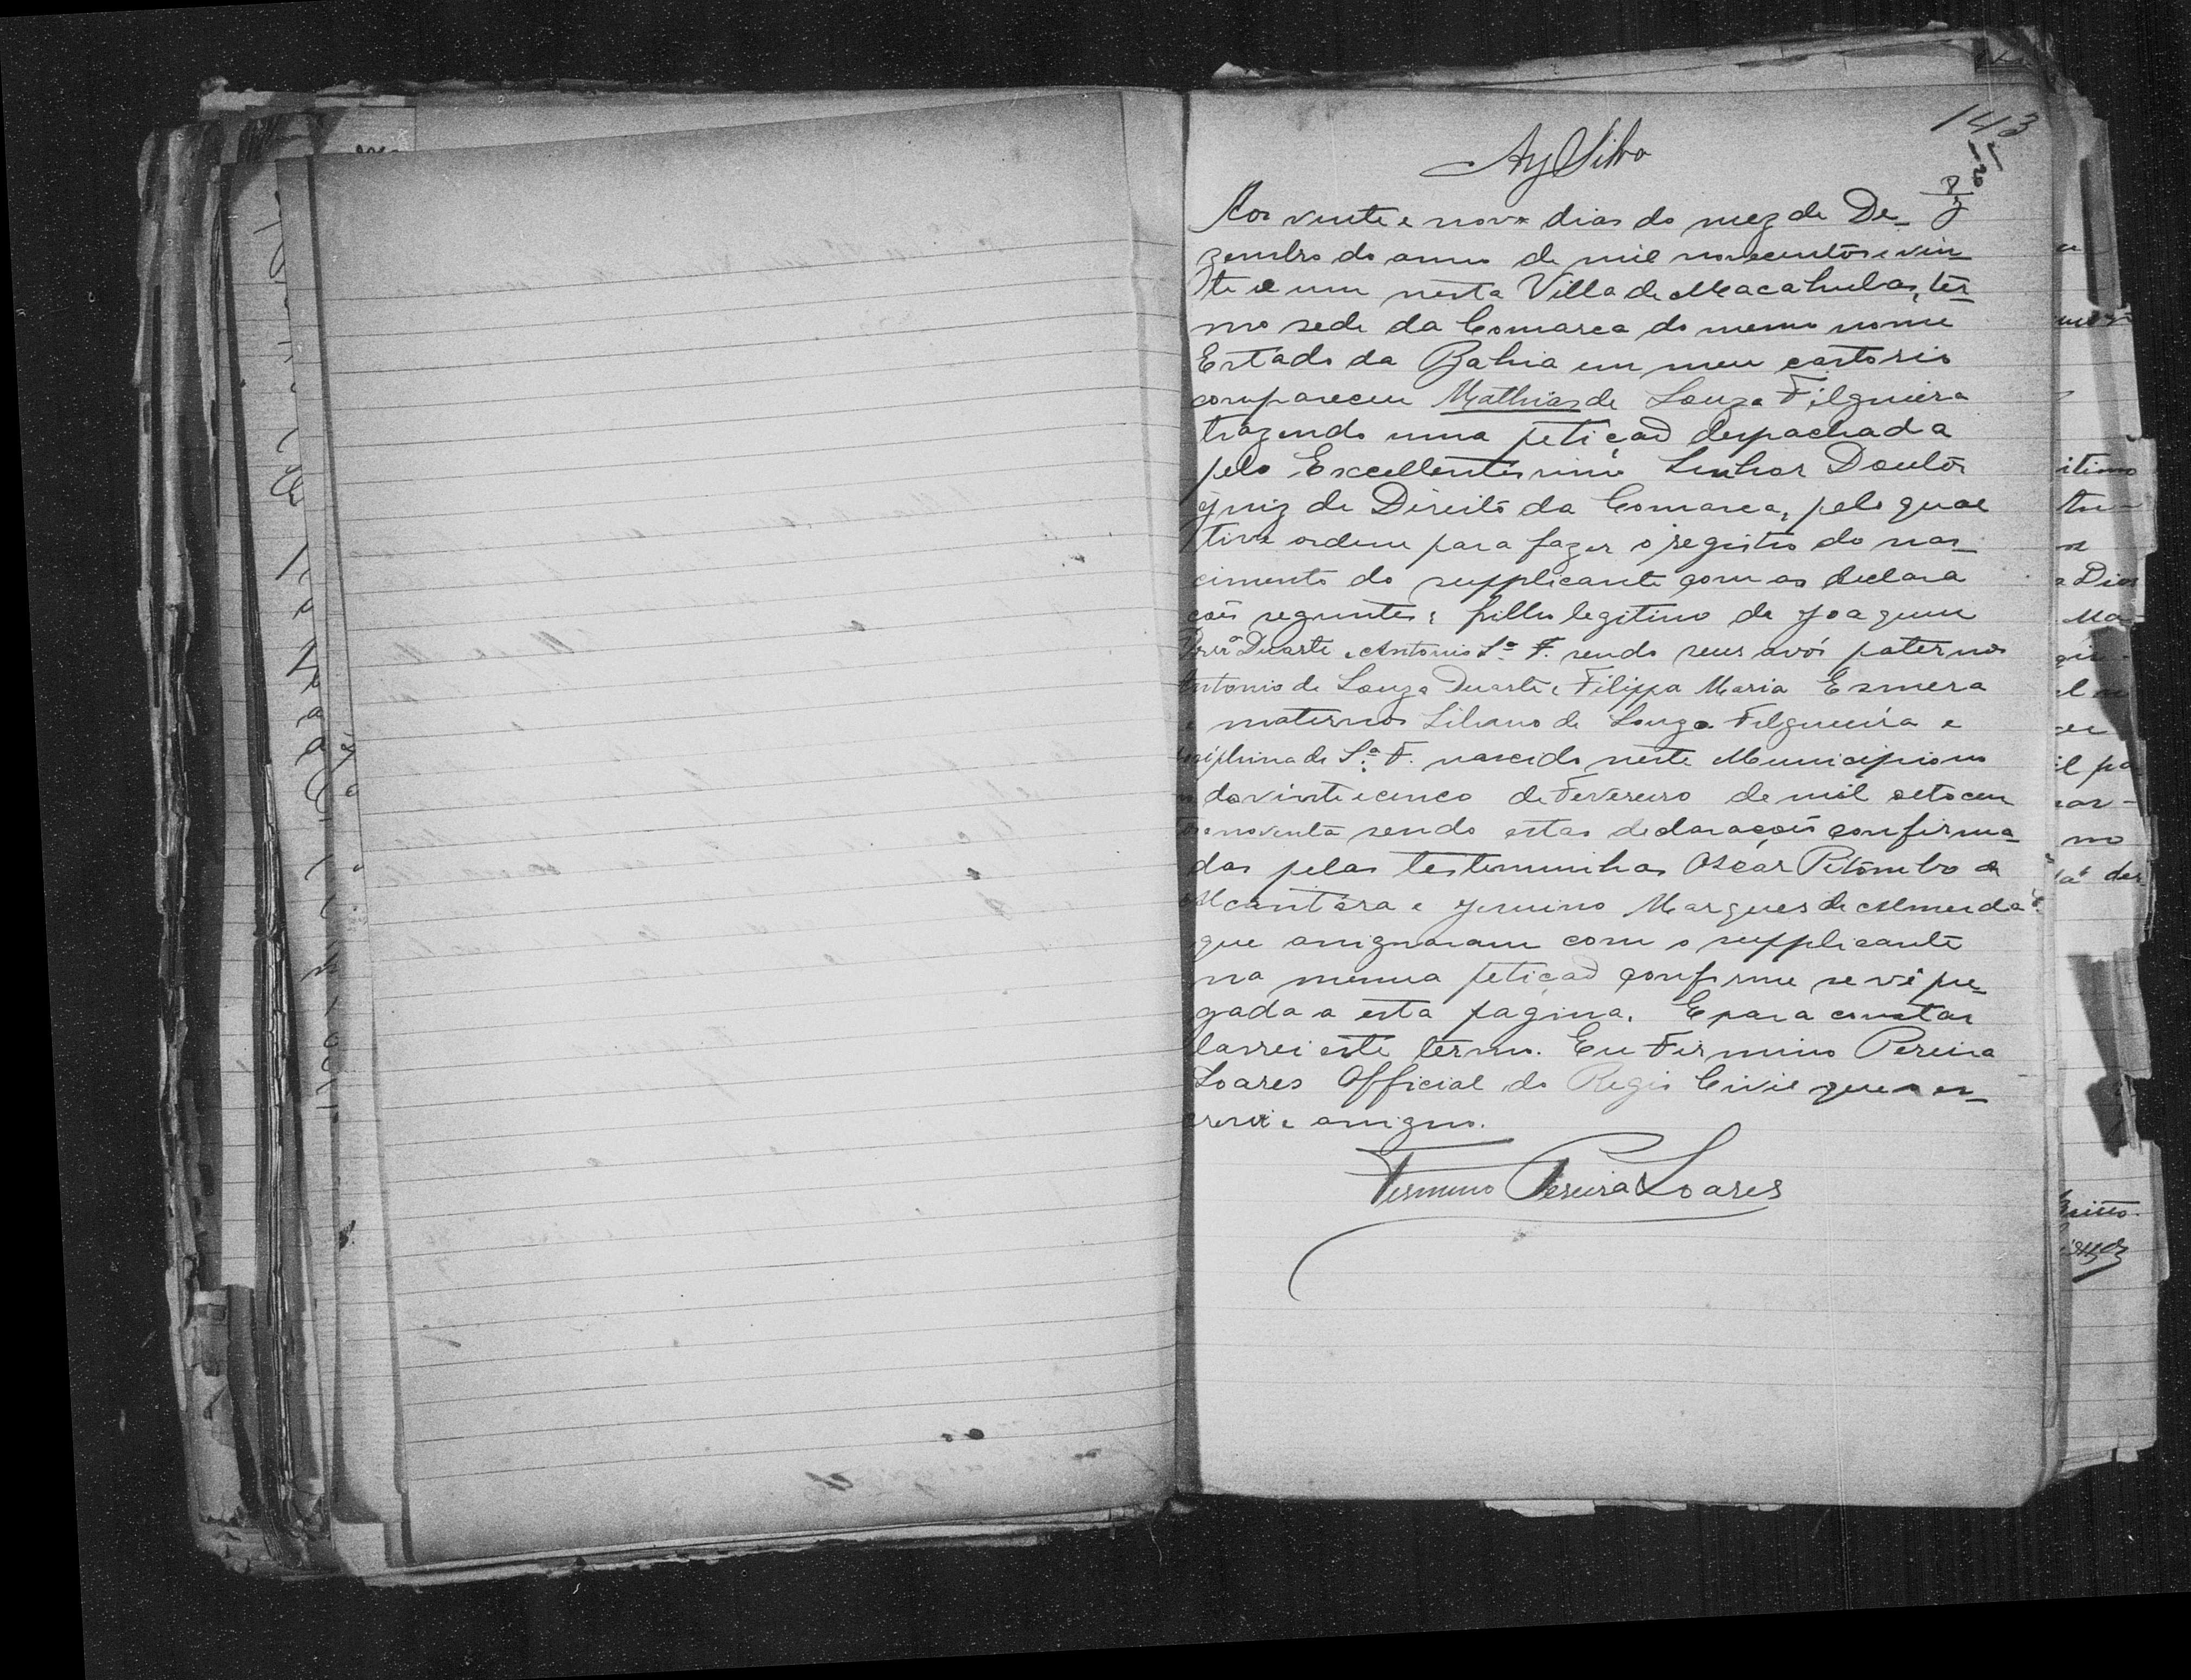 143
Ay Silva
Aos vinte e nove dias do mez de De-
zembro do anno de mil novecentos e vin-
te e um nesta Villa de Macahubas, ter-
mo sede da Comarca do mesmo nome
Estado da Bahia em meu cartorio
compareceu Mathias de Souza Filgueira
trazendo uma petiçaõ despachada
pelo Excellentissimo Senhor Doutor
Juiz de Direito da Comarca, pelo qual
tive ordem para fazer o registro do nas-
cimento do supplicante com as declara
çoẽs seguintes: filho legitimo de Joaquim
Duarte e Antonia Sª F. sendo seus avós paternos
Antonio de Souza Duarte e Filippa Maria Esmera
e maternos Silvano de Souza Filgueira e
de Sª F. nascido neste Municipio no
vinte e cinco de Fevereiro de mil oitocen
tos e noventa sendo estas declaraçoẽs confirma-
das pelas testemunhas Oscar Pitombo de
Alcantara e Jenuino Marques de Almeida
que assignaram com o supplicante
na mesma petiçaõ conforme se vê pre-
gada a esta pagina. E para constar
lavrei este termo. Eu Firmino Pereira
Soares Official do Regis Civil que o es-
crevi e assigno.
Firmino Pereira Soares